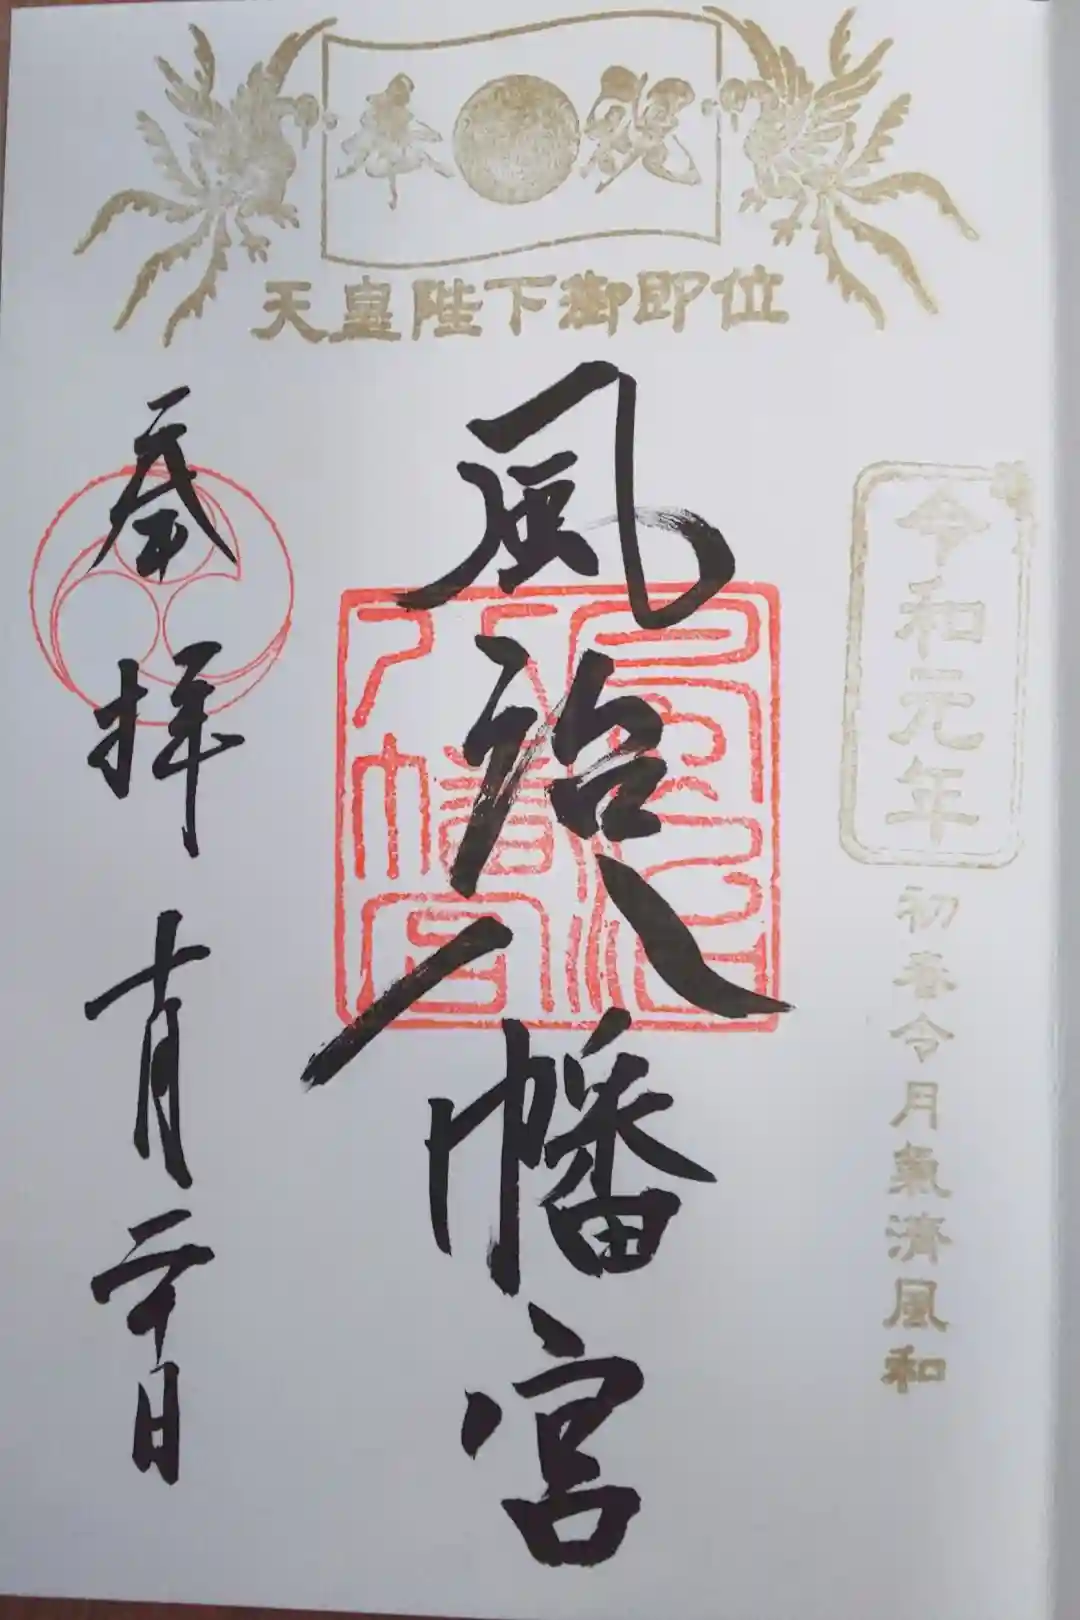 奉祝
天皇陛下御即位
令和元年
初春令月氣淑風和
風治八幡宮
風治
八幡宮
奉拝
十月二十日